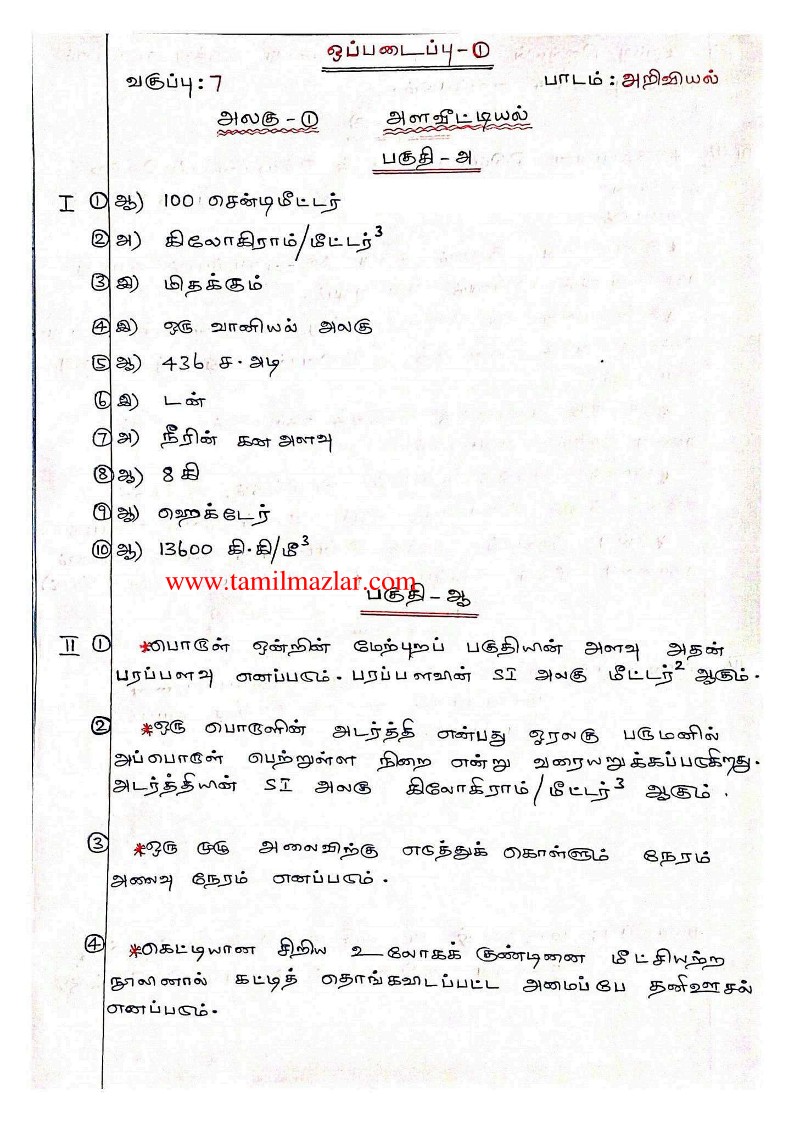 ஒப்படைப்பு - ①
வகுப்பு : 7 பாடம் : அறிவியல்
அலகு - ① அளவீட்டியல்
பகுதி - அ
I ① ஆ) 100 சென்டிமீட்டர்
② அ) கிலோகிராம்/மீட்டர்³
③ இ) மிதக்கும்
④ இ) ஒரு வானியல் அலகு
⑤ ஆ) 436 ச. அடி
⑥ இ) டன்
⑦ அ) நீரின் கன அளவு
⑧ ஆ) 8 கி
⑨ ஆ) ஹெக்டேர்
⑩ ஆ) 13600 கி.கி/மீ³
www.tamilmazlar.com
பகுதி - ஆ
II ① *பொருள் ஒன்றின் மேற்புறப் பகுதியின் அளவு அதன்
பரப்பளவு எனப்படும். பரப்பளவின் SI அலகு மீட்டர்² ஆகும்.
② *ஒரு பொருளின் அடர்த்தி என்பது ஓரலகு பருமனில்
அப்பொருள் பெற்றுள்ள நிறை என்று வரையறுக்கப்படுகிறது.
அடர்த்தியின் SI அலகு கிலோகிராம்/மீட்டர்³ ஆகும்.
③ *ஒரு முழு அலைவிற்கு எடுத்துக் கொள்ளும் நேரம்
அலைவு நேரம் எனப்படும்.
④ *கெட்டியான சிறிய உலோகக் குண்டினை மீட்சியற்ற
நூலினால் கட்டித் தொங்கவிடப்பட்ட அமைப்பே தனிஊசல்
எனப்படும்.